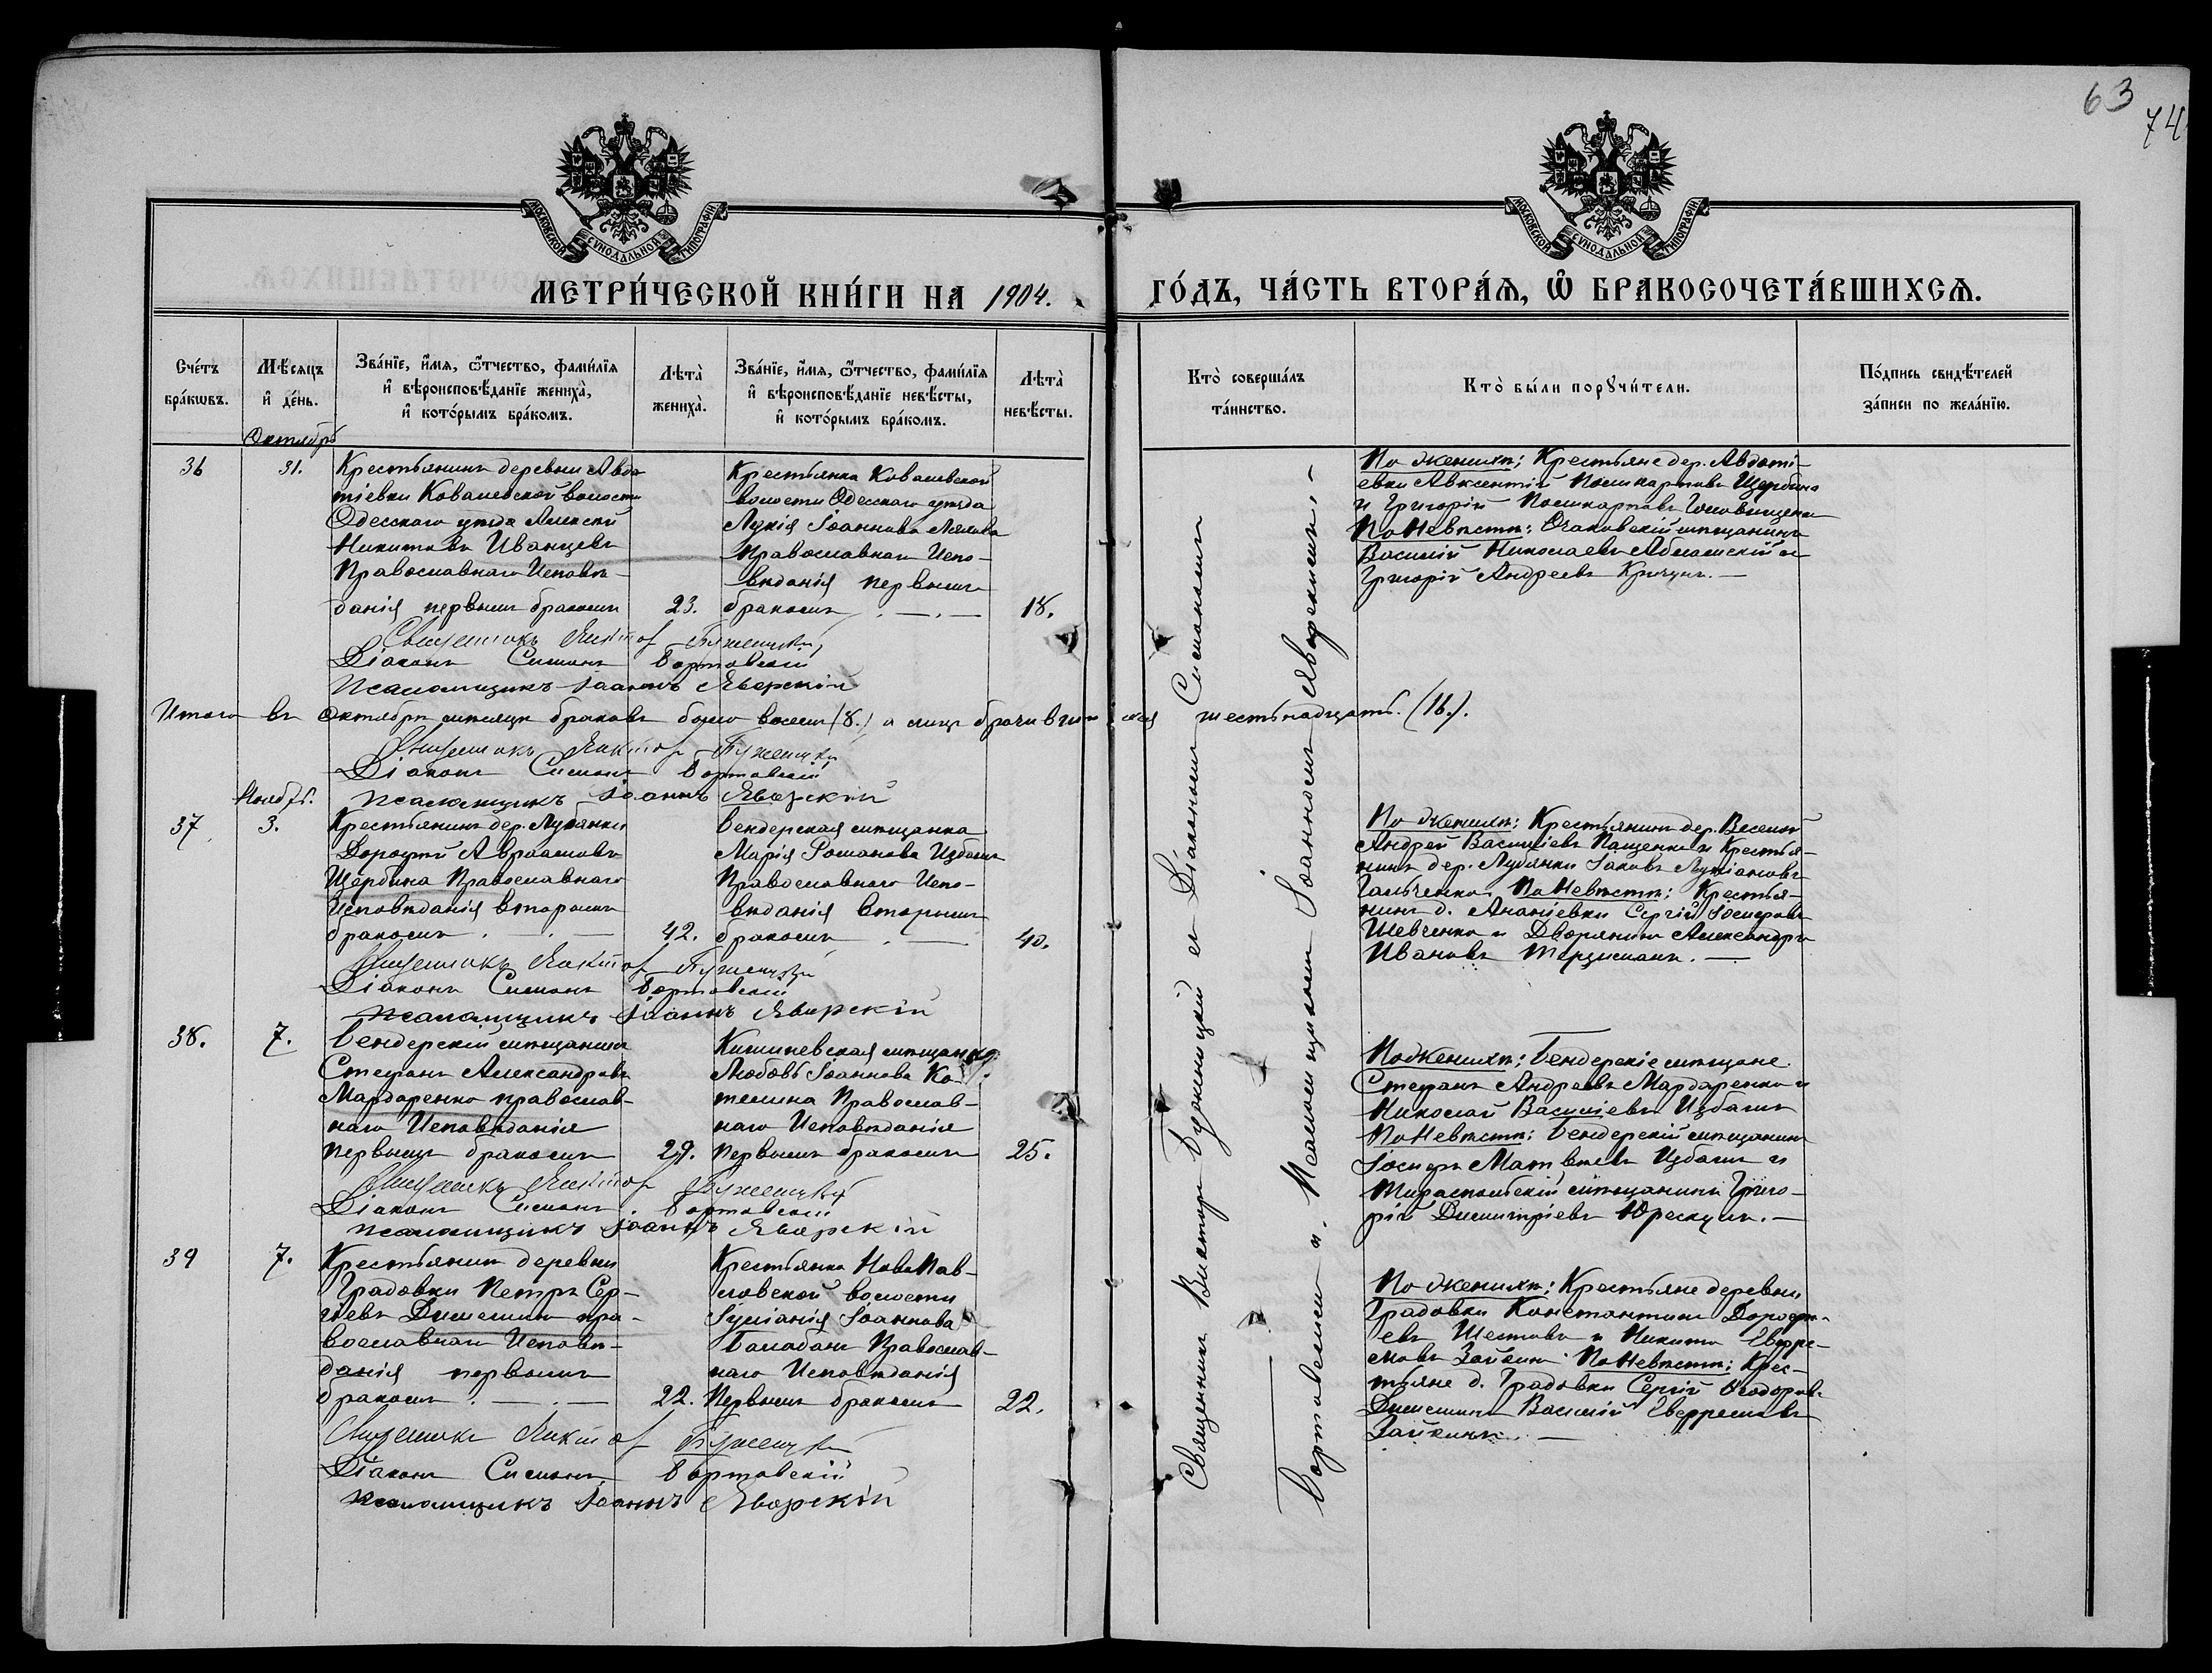 63
74
МОСКОВСКОЙ СѴНОДАЛЬНОЙ ТИПОГРАФІИ
МОСКОВСКОЙ СѴНОДАЛЬНОЙ ТИПОГРАФІИ
МЕТРИ́ЧЕСКОЙ КНИ́ГИ НА 1904.
ГО́ДЪ, ЧА́СТЬ ВТОРА́Ѧ, Ѡ҆ БРАКОСОЧЕТА́ВШИХСѦ.
Сче́тъ
бра́кѡвъ.
Мѣ́сяцъ
и҆ де́нь.
Зва́нїе, и҆́мя, ѻ҆́тчество, фами́лїя
и҆ вѣроисповѣ́данїе жениха̀,
и҆ кото́рымъ бра́комъ.
Лѣта̀
жениха̀.
Зва́нїе, и҆́мя, ѻ҆́тчество, фами́лїя
и҆ вѣроисповѣ́данїе невѣ́сты,
и҆ кото́рымъ бра́комъ.
Лѣта̀
невѣ́сты.
Кто̀ соверша́лъ
та́инство.
Кто̀ бы́ли порꙋчи́тели.
По́дпись свидѣ́телей
за́писи по жела́нїю.
Октябрь
36
31.
Крестьянинъ деревни Авдо-
тіевки Ковалевской волости
Одесскаго уѣзда Алексѣй
Никитовъ Иванцевъ
Православнаго Исповѣ-
данія первымъ бракомъ
23.
Крестьянка Ковалевской
волости Одесскаго уѣзда
Лукія Іоаннова
Православнаго Испо-
вѣданія первымъ
бракомъ
18.
По женихѣ: Крестьяне дер. Авдоті-
евки Авксентій Поликарповъ Щербина
и Григорій Поликарповъ
По Невѣстѣ: Очаковскій мѣщанинъ
Василій Николаевъ и
Григорій Андреевъ Кричунъ.
Священникъ Викторъ Бужницкій
Діаконъ Симонъ Бортовскій
Псаломщикъ Іоаннъ Яворскій
Итого въ Октябрѣ мѣсяцѣ браковъ было восемь (8.) а лицъ шестьнадцать. (16.).
Священникъ Викторъ Бужницкій
Діаконъ Симонъ Бортовскій
Псаломщикъ Іоаннъ Яворскій
Ноябрь.
37
3.
Крестьянинъ дер. Лубянки
Дорофей Авраамовъ
Щербина Православнаго
Исповѣданія вторымъ
бракомъ
42.
Бендерская мѣщанка
Марія Романова Избашъ
Православнаго Испо-
вѣданія вторымъ
бракомъ
40.
По женихѣ: Крестьянинъ дер. Веселой
Андрей Василіевъ Пащенко и Крестья-
нинъ дер. Лубянки Іаковъ Лукіановъ
Гальченко. По Невѣстѣ: Крестья-
нинъ д. Ананіевки Сергій Іосифовъ
Шевченко и Дворянинъ Александръ
Ивановъ
Священникъ Викторъ Бужницкій
Діаконъ Симонъ Бортовскій
Псаломщикъ Іоаннъ Яворскій
38.
7.
Бендерскій мѣщанинъ
Стефанъ Александровъ
Мардаренко православ-
наго Исповѣданія
первымъ бракомъ
29.
Кишиневская мѣщанка
Любовь Іоаннова Ко-
телина Православ-
наго Исповѣданія
первымъ бракомъ
25.
По женихѣ: Бендерскіе мѣщане
Стефанъ Андреевъ Мардаренко и
Николай Василіевъ Избашъ
По Невѣстѣ: Бендерскій мѣщанинъ
Іосифъ Матвѣевъ Избашъ и
Тираспольскій мѣщанинъ Григо-
рій Димитріевъ
Священникъ Викторъ Бужницкій
Діаконъ Симонъ Бортовскій
Псаломщикъ Іоаннъ Яворскій
39
7.
Крестьянинъ деревни
Градовки Петръ Сер-
гіевъ пра-
вославнаго Исповѣ-
данія первымъ
бракомъ
22.
Крестьянка НовоПав-
ловской волости
Іуліанія Іоаннова
Балабанъ Православ-
наго Исповѣданія
Первымъ бракомъ
22.
По женихѣ: Крестьяне деревни
Градовки Константинъ Дорофе-
евъ Шестовъ и Никита Евфре-
мовъ Зайкинъ. По Невѣстѣ: Крес-
тьяне д. Градовки Сергій Ѳеодоровъ
Василій Евфремовъ
Зайкинъ.
Священникъ Викторъ Бужницкій
Діаконъ Симонъ Бортовскій
Псаломщикъ Іоаннъ Яворскій
Священникъ Викторъ Бужницкій съ Діакономъ Симономъ
Бортовскимъ и Псаломщикомъ Іоанномъ Яворскимъ.